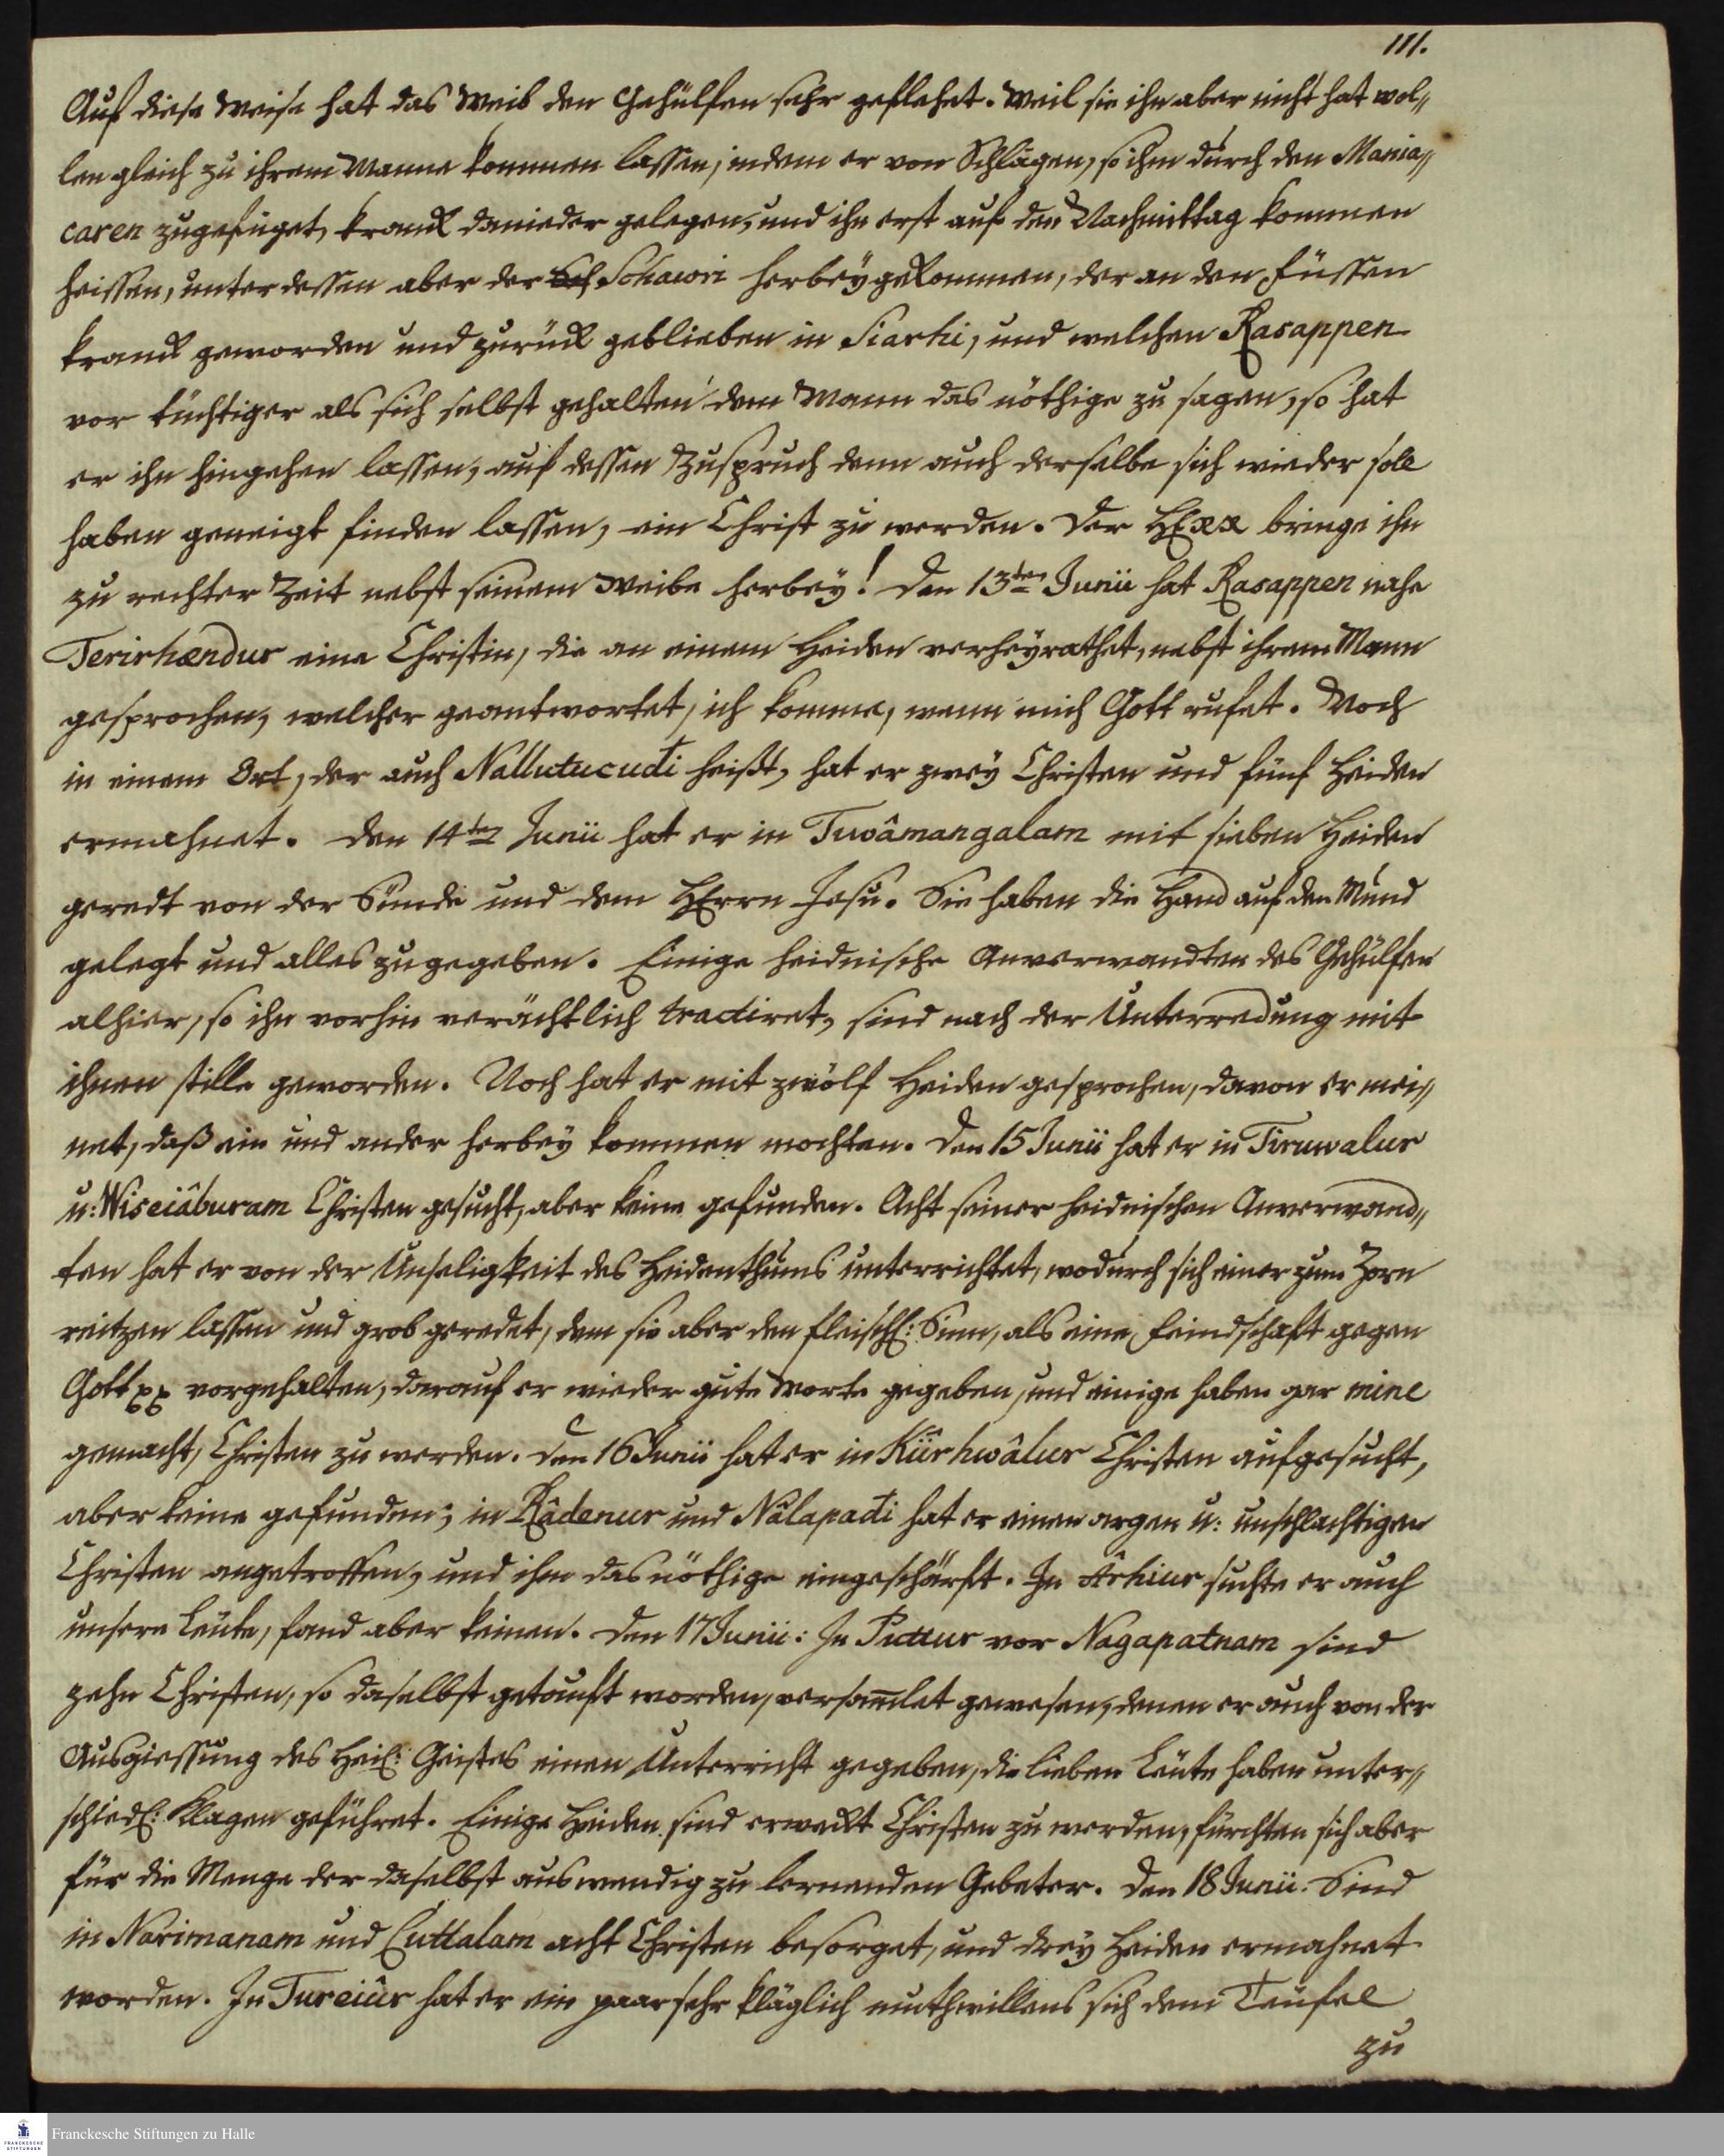 111.
Auf diese Weise hat das Weib den Gehülfen sehr geflehet. Weil sie ihn aber nicht hat wol„
len gleich zu ihrem Manne kommen lassen, indem er von Schlägen, so ihm durch den Mania„
caren zugefüget, kranck danieder gelegen, und ihn erst auf den Nachmittag kommen
heissen, unter dessen aber der Sch Schawri herbeÿgekommen, der an den Füssen
kranck geworden und zurück geblieben in Siarhi, und welchen Rasappen
vor tüchtiger als sich selbst gehalten dem Mann das nöthige zu sagen, so hat
er ihn hingehen lassen, auf dessen Zuspruch denn auch derselbe sich wieder soll
haben geneigt finden lassen, ein Christ zu werden. Der HErr bringe ihn
zu rechter Zeit nebst seinem Weibe herbeÿ! Den 13ten Junii hat Rasappen nahe
Terirhændur eine Christin, die an einem Heiden verheÿrathet, nebst ihrem Mann
gesprochen, welcher geantwortet, ich komme, wenn mich Gott rufet. Noch
in einem Ort, der auch Nallutucudi heißt, hat er zweÿ Christen und fünf Heiden
ermahnet. Den 14ten Junii hat er in Tuwâmangalam mit sieben Heiden
geredt von der Sünde und dem HErrn Jesu. Sie haben die Hand auf den Mund
gelegt und alles zugegeben. Einige heidnische Anverwandten des Gehülfen
alhier, so ihn vorhin verächtlich tractiret, sind nach der Unterredung mit
ihnen stille geworden. Noch hat er mit zwölf Heiden gesprochen, davon er mei„
net, daß ein und ander herbeÿ kommen mochten. Den 15 Junii hat er in Tiruwalur
u: Wiseiâburam Christen gesucht, aber keine gefunden. Acht seiner heidnischen Anverwand„
ten hat er von der Unseligkeit des Heidenthums unterrichtet, wodurch sich einer zum Zorn
reitzen lassen und grob geredet, dem sie aber den fleischl: Sinn, als eine Feindschaft gegen
Gott pp vorgehalten, darauf er wieder gute Worte gegeben, und einige haben gar mine
gemacht, Christen zu werden. Den 16 Junii hat er in Kürhwâlur Christen aufgesucht,
aber keine gefunden; in Râdenur und Nâlapadi hat er einen argen u: unschlachtigen
Christen angetroffen, und ihm das nöthige eingeschärft. In Arhiur suchte er auch
unsere Leute, fand aber keinen. Den 17 Junii: In Puttur vor Nagapatnam sind
zehn Christen, so daselbst getauft worden, versam̅let gewesen, denen er auch von der
Ausgiessung des Heil: Geistes einen Unterricht gegeben, die lieben Leute haben unter„
schiedl: Klagen geführet. Einige Heiden sind erweckt Christen zu werden, fürchten sich aber
für die Menge der daselbst auswendig zu lernenden Gebeter. Den 18 Junii. Sind
in Narimanam und Cuttalam acht Christen besorget, und dreÿ Heiden ermahnet
worden. In Tureiûr hat er ein paar sehr kläglich muthwillens sich dem Teufel
zu
Franckesche Stiftungen zu Halle